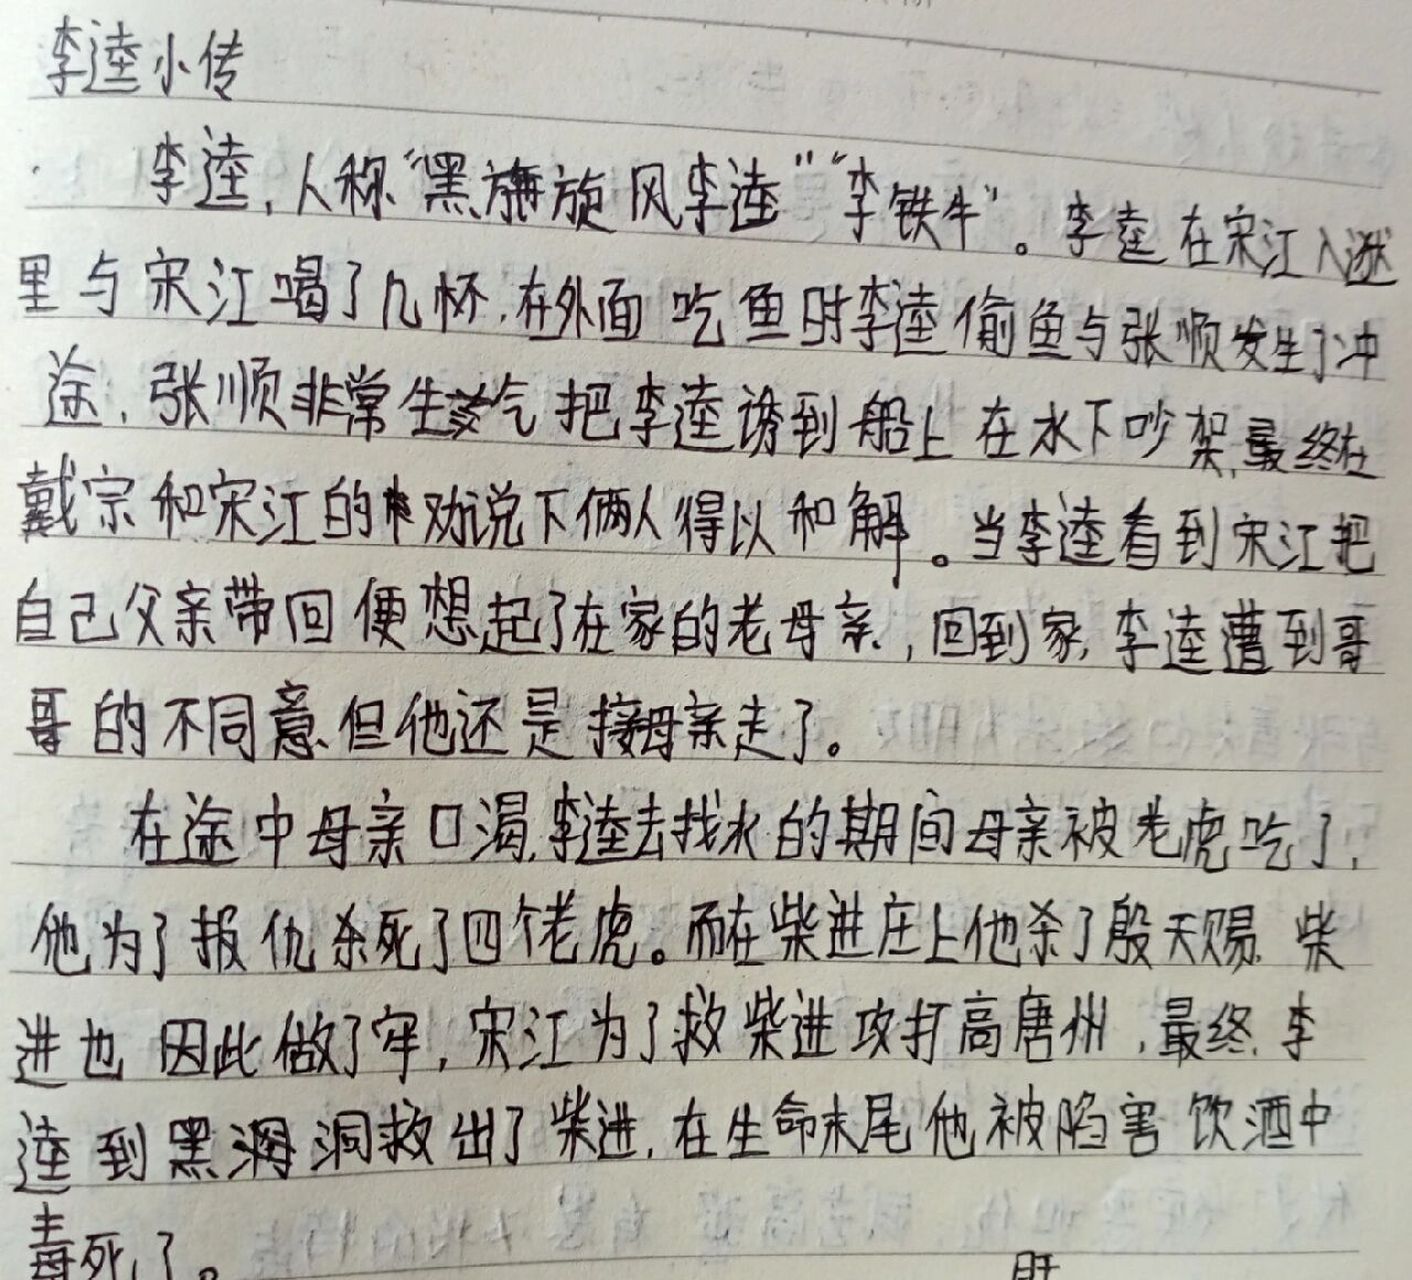 李逵小传
李逵,人称“黑旋风李逵”“李铁牛”。李逵在宋江入
里与宋江喝了几杯,在外面吃鱼时李逵偷鱼与张顺发生了冲
途,张顺非常生气把李逵诱到船上在水下吵架,最终在
戴宗和宋江的劝说下俩人得以和解。当李逵看到宋江把
自己父亲带回便想起了在家的老母亲,回到家,李逵遭到哥
哥的不同意,但他还是接母亲走了。
在途中母亲口渴,李逵去找水的期间母亲被老虎吃了,
他为了报仇杀死了四个老虎。而在柴进庄上他杀了殷天赐,柴
进也因此做了牢,宋江为了救柴进攻打高唐州,最终,李
逵到黑洞救出了柴进,在生命末尾他被陷害饮酒中
毒死了。